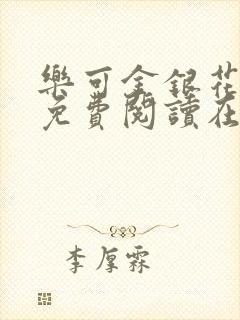 樂可金銀花
免費閱讀在
李厚霖